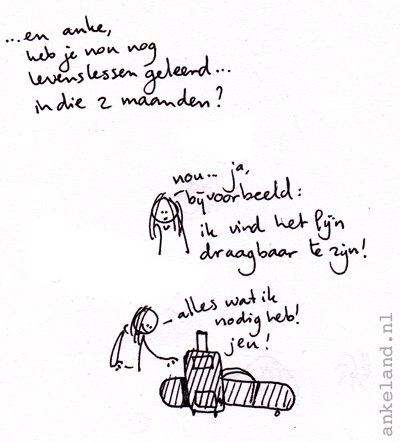 ...en anke,
heb je nou nog
levenslessen geleerd...
in die 2 maanden?
nou... ja,
bijvoorbeeld:
ik vind het fijn
draagbaar te zijn!
alles wat ik
nodig heb!
jeu!
ankeland.nl